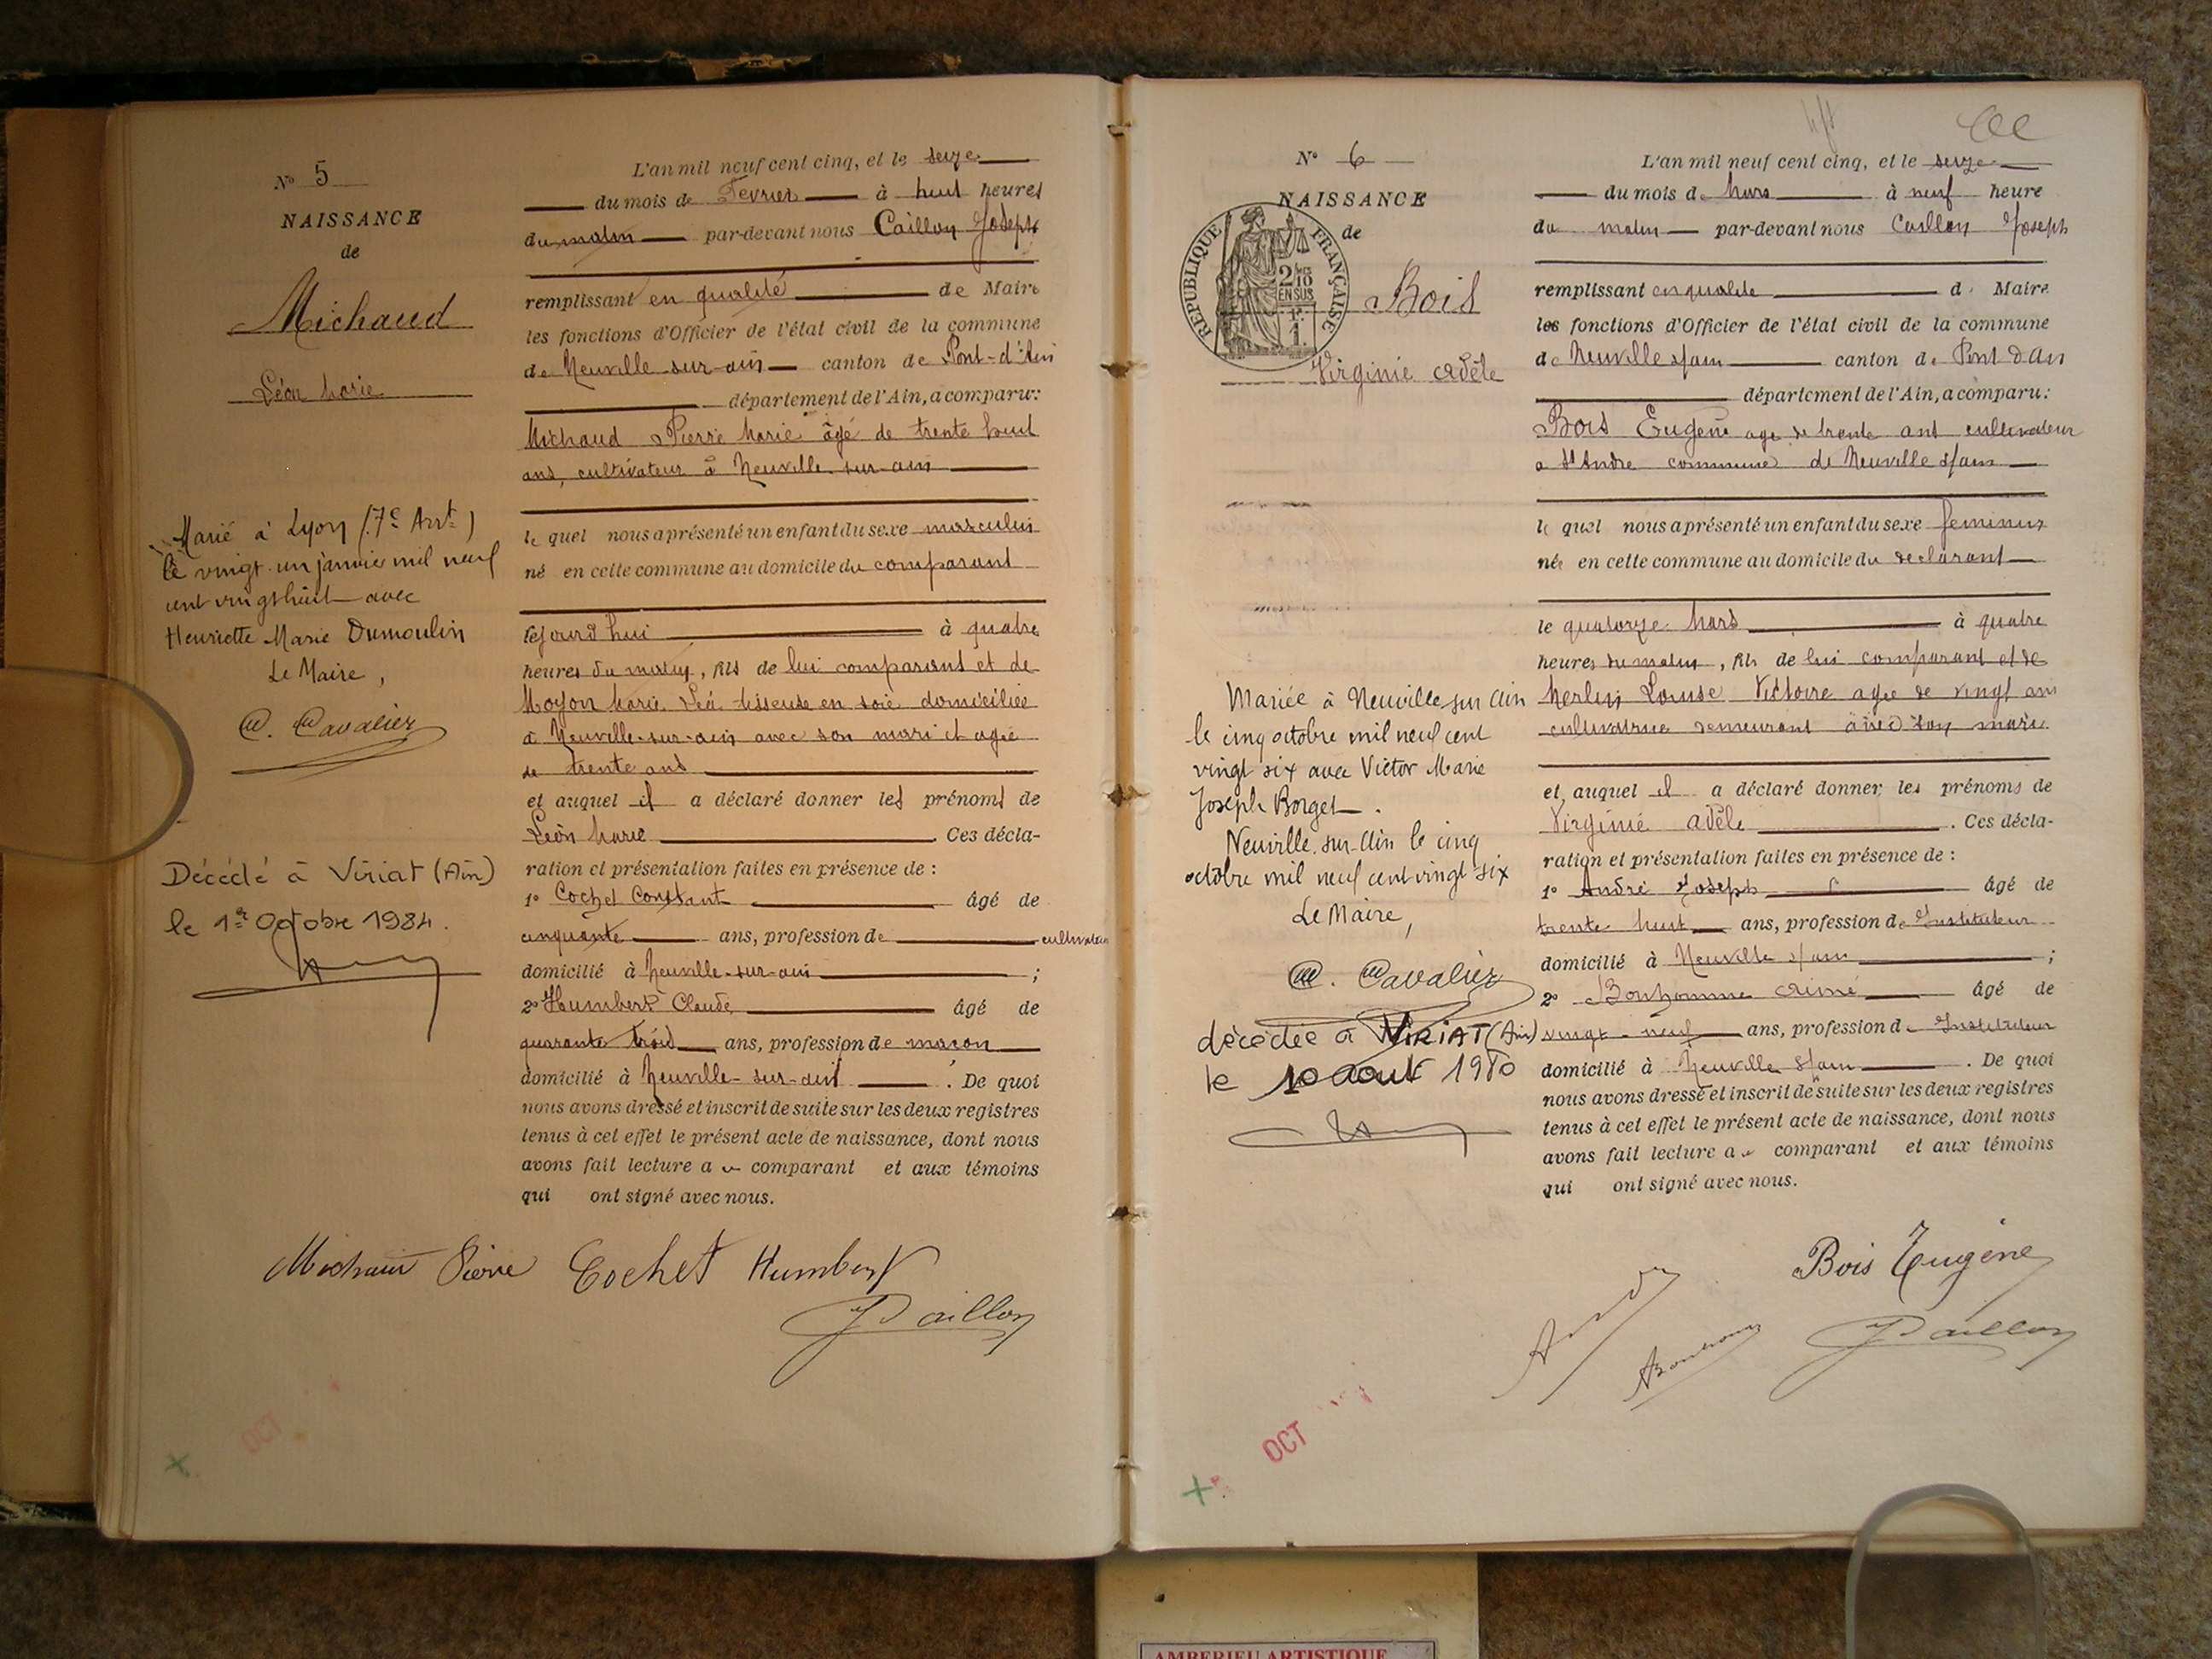 N° 5
NAISSANCE
de
Michaud
Léon Marie
Marié à Lyon (7e Arrt)
le vingt un janvier mil neuf
cent vingt huit avec
Henriette Marie Dumoulin
Le Maire,
Cavalier
Décédé à Viriat (Ain)
le 1er Octobre 1984.
L'an mil neuf cent cinq, et le seize
du mois de Fevrier à huit heures
du matin par-devant nous Caillon Joseph
remplissant en qualité de Maire
les fonctions d'Officier de l'état civil de la commune
de Neuville-sur-ain canton de Pont-d'Ain
département de l'Ain, a comparu:
Michaud Pierre Marie âgé de trente huit
ans, cultivateur à Neuville-sur-ain
le quel nous a présenté un enfant du sexe masculin
né en cette commune au domicile du comparant
cejourd'hui à quatre
heures du matin, fils de lui comparant et de
Moyon Marie Léa tisseuse en soie domiciliée
à Neuville-sur-ain avec son mari et agée
de trente ans
et auquel il a déclaré donner les prénoms de
Léon Marie. Ces décla-
ration et présentation faites en présence de :
1° Cochet Constant âgé de
cinquante ans, profession de cultivateur
domicilié à Neuville-sur-ain ;
2° Humbert Claude âgé de
quarante trois ans, profession de maçon
domicilié à Neuville-sur-ain. De quoi
nous avons dressé et inscrit de suite sur les deux registres
tenus à cet effet le présent acte de naissance, dont nous
avons fait lecture au comparant et aux témoins
qui ont signé avec nous.
Michaud Pierre Cochet Humbert
J Caillon
OCT
N° 6
NAISSANCE
de
REPUBLIQUE FRANÇAISE
2/10
EN SUS
1
F.
Bois
Virginie Adèle
Mariée à Neuville sur Ain
le cinq octobre mil neuf cent
vingt six avec Victor Marie
Joseph Borget.
Neuville-sur-Ain le cinq
octobre mil neuf cent vingt six
Le Maire,
Cavalier
décédée à VIRIAT (Ain)
le 10 aout 1980
L'an mil neuf cent cinq, et le seize
du mois de Mars à neuf heure
du matin par-devant nous Caillon Joseph
remplissant en qualité de Maire
les fonctions d'Officier de l'état civil de la commune
de Neuville s/ain canton de Pont d'Ain
département de l'Ain, a comparu:
Bois Eugène age de trente ans cultivateur
a St André commune de Neuville s/ain
le quel nous a présenté un enfant du sexe feminin
née en cette commune au domicile du declarant
le quatorze Mars à quatre
heures du matin, fils de lui comparant et de
Merlin Louise Victoire agée de vingt ans
cultivatrice demeurant avec son mari
et auquel il a déclaré donner les prénoms de
Virginie adèle. Ces décla-
ration et présentation faites en présence de :
1° André Joseph âgé de
trente huit ans, profession de Instituteur
domicilié à Neuville s/ain ;
2° Bonhomme Aimé âgé de
vingt-neuf ans, profession de Instituteur
domicilié à Neuville s/ain. De quoi
nous avons dressé et inscrit de suite sur les deux registres
tenus à cet effet le présent acte de naissance, dont nous
avons fait lecture au comparant et aux témoins
qui ont signé avec nous.
Bois Eugène
J Caillon
OCT
AMBERIEU ARTISTIQUE